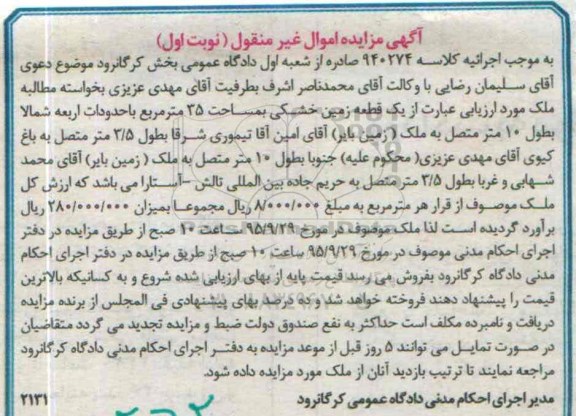 آگهی مزایده اموال غیر منقول (نوبت اول)
به موجب اجرائیه کلاسه ۹۴۰۲۷۴ صادره از شعبه اول دادگاه عمومی بخش کرگانرود موضوع دعوی
آقای سلیمان رضایی با وکالت آقای محمدناصر اشرف بطرفیت آقای مهدی عزیزی بخواسته مطالبه
ملک مورد ارزیابی عبارت از یک قطعه زمین خشکی بمساحت ۳۵ مترمربع باحدودات اربعه شمالا
بطول ۱۰ متر متصل به ملک (زمین بایر) آقای امین آقا تیموری شرقا بطول ۳/۵ متر متصل به باغ
کیوی آقای مهدی عزیزی (محکوم علیه) جنوبا بطول ۱۰ متر متصل به ملک (زمین بایر) آقای محمد
شهابی و غربا بطول ۳/۵ متر متصل به حریم جاده بین المللی تالش -آستارا می باشد که ارزش کل
ملک موصوف از قرار هر مترمربع به مبلغ ۸/۰۰۰/۰۰۰ ریال مجموعا بمیزان ۲۸۰/۰۰۰/۰۰۰ ریال
برآورد گردیده است لذا ملک موصوف در مورخ ۹۵/۹/۲۹ ساعت ۱۰ صبح از طریق مزایده در دفتر
اجرای احکام مدنی موصوف در مورخ ۹۵/۹/۲۹ ساعت ۱۰ صبح از طریق مزایده در دفتر اجرای احکام
مدنی دادگاه کرگانرود بفروش می رسد قیمت پایه از بهای ارزیابی شده شروع و به کسانیکه بالاترین
قیمت را پیشنهاد دهند فروخته خواهد شد و ده درصد بهای پیشنهادی فی المجلس از برنده مزایده
دریافت و نامبرده مکلف است حداکثر به نفع صندوق دولت ضبط و مزایده تجدید می گردد متقاضیان
در صورت تمایل می توانند ۵ روز قبل از موعد مزایده به دفتر اجرای احکام مدنی دادگاه کرگانرود
مراجعه نمایند تا ترتیب بازدید آنان از ملک مورد مزایده داده شود.
مدیر اجرای احکام مدنی دادگاه عمومی کرگانرود ۲۱۳۱